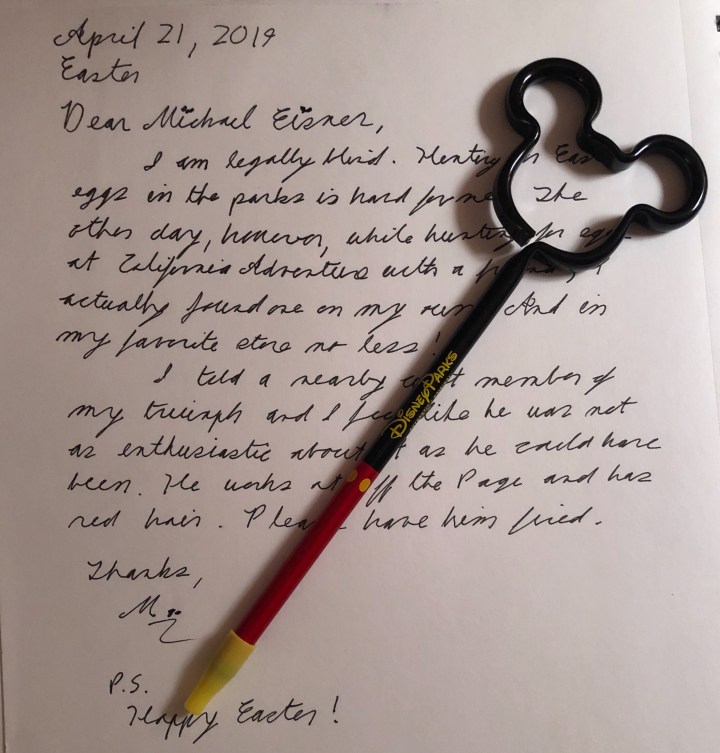 April 21, 2019
Easter
Dear Michael Eisner,
I am legally blind. Hunting
eggs in the parks is hard for me. The
other day, however, while hunting for eggs
at California Adventure with a friend, I
actually found one on my own. And in
my favorite store no less!
I told a nearby cast member of
my triumph and I feel like he was not
as enthusiastic about it as he could have
been. He works at Off the Page and has
red hair. Please have him fired.
Thanks,
P.S.
Happy Easter!
Disney Parks